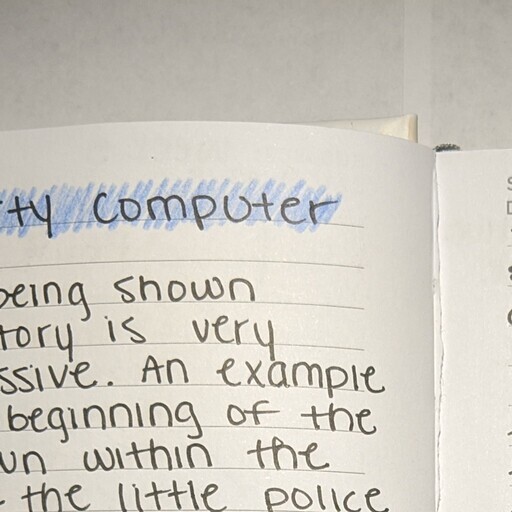 ty computer
being shown
tory is very
ssive. An example
beginning of the
un within the
the little police